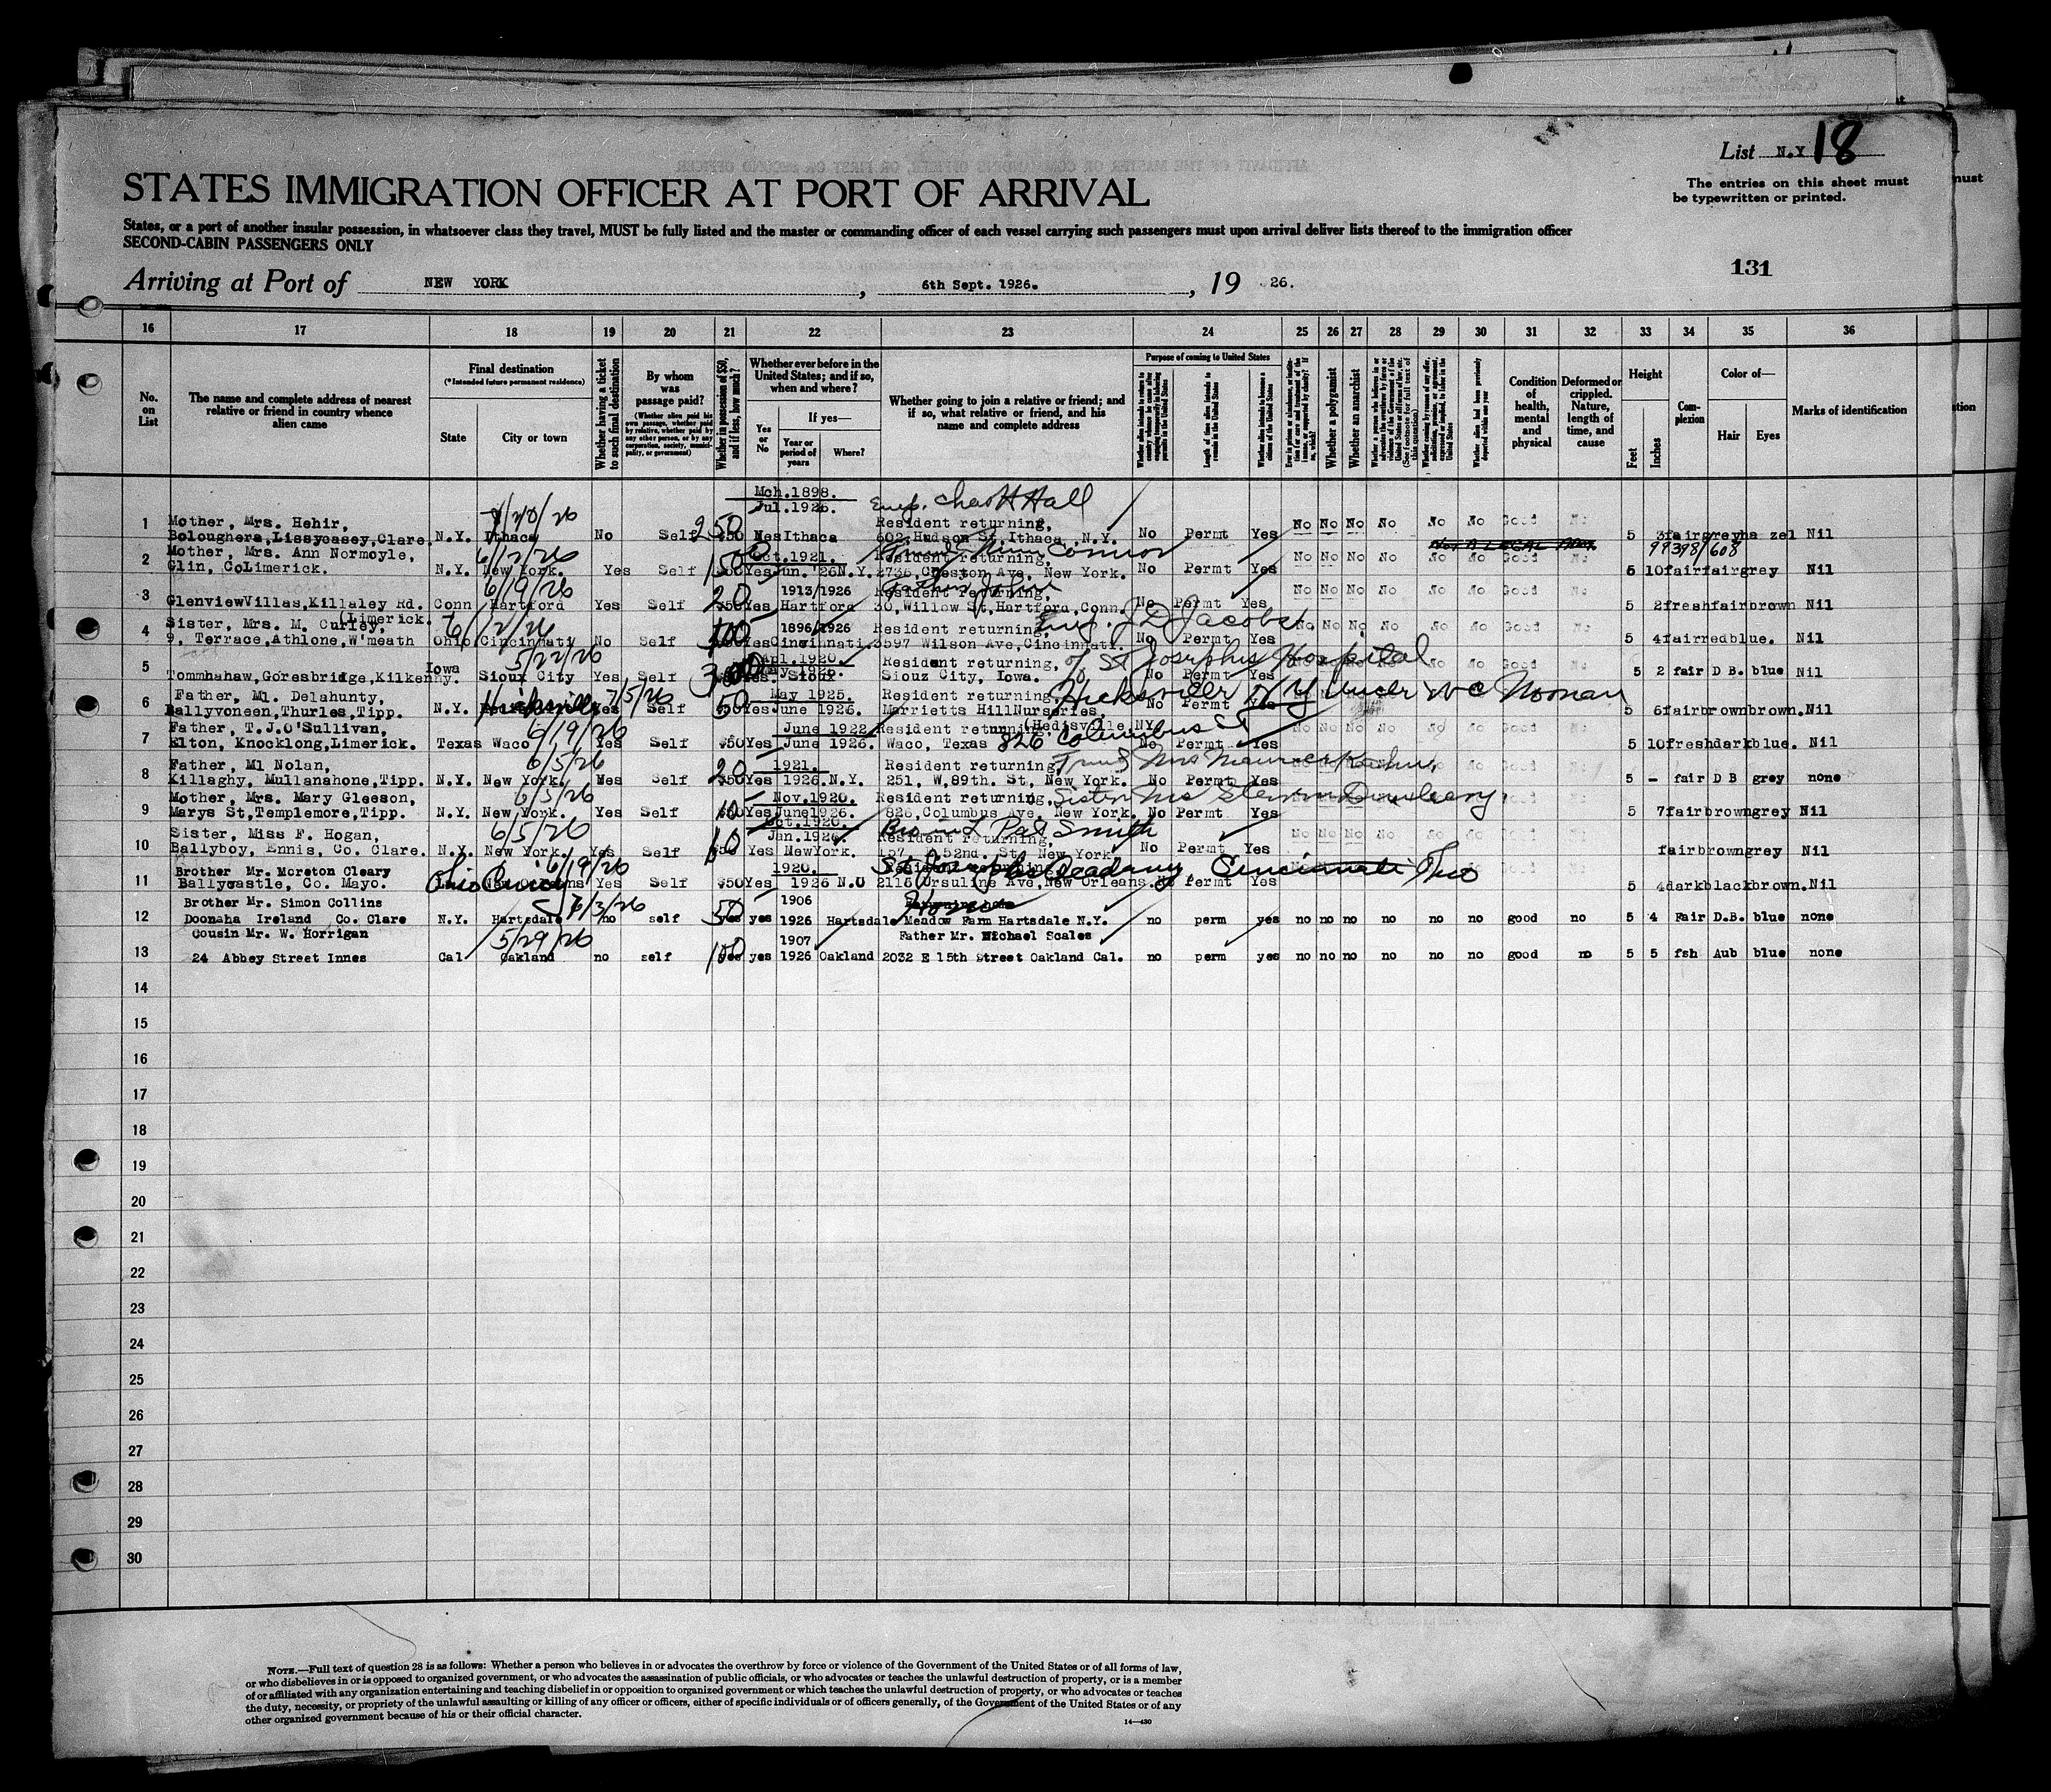 List N.Y 18
STATES IMMIGRATION OFFICER AT PORT OF ARRIVAL
The entries on this sheet must
be typewritten or printed.
States, or a port of another insular possession, in whatsoever class they travel, MUST be fully listed and the master or commanding officer of each vessel carrying such passengers must upon arrival deliver lists thereof to the immigration officer
SECOND-CABIN PASSENGERS ONLY
131
Arriving at Port of NEW YORK, 6th Sept. 1926., 19 26.
16 17 18 19 20 21 22 23 24 25 26 27 28 29 30 31 32 33 34 35 36
No. on List
The name and complete address of nearest relative or friend in country whence alien came
Final destination
(*Intended future permanent residence)
State City or town
Whether having a ticket to such final destination
By whom was passage paid?
(Whether alien paid his own passage, whether paid by relative, whether paid by any other person, or by any corporation, society, municipality, or government)
Whether in possession of $50, and if less, how much?
Whether ever before in the United States; and if so, when and where?
Yes or No
If yes—
Year or period of years Where?
Whether going to join a relative or friend; and if so, what relative or friend, and his name and complete address
Purpose of coming to United States
Length of time alien intends to remain in the United States
Whether alien intends to become a citizen of the United States
Whether a polygamist
Whether an anarchist
Condition of health, mental and physical
Deformed or crippled. Nature, length of time, and cause
Height
Feet Inches
Complexion
Color of—
Hair Eyes
Marks of identification
Mch.1898. Emp. Chas H Hall
7/20/26 Jul.1926.
1 Mother, Mrs. Hehir, Resident returning,
Boloughera, Lissycasey, Clare. N.Y. Ithaca No Self 250 Yes Ithaca 602 Hudson St, Ithaca, N.Y. No Permt Yes No No No No No No Good No 5 3 fair grey ha zel Nil
99398/608
2 Mother, Mrs. Ann Normoyle, 6/2/26 Oct.1921. Resident returning,
Glin, CoLimerick. N.Y. New York. Yes Self 150 Yes Jun. '26 N.Y. 2736, Creston Ave, New York. No Permt Yes No No No No No No Good No 5 10 fair fair grey Nil
3 6/19/26 1913/1926 Father John Resident returning,
GlenviewVillas, Killaley Rd. Conn Hartford Yes Self 20 Yes Hartford 30, Willow St, Hartford, Conn. No Permt Yes No No No No No No Good No 5 2 fresh fair brown Nil
(Limerick.
4 Sister, Mrs. M. Curley, 6/2/26 1896/1926 Resident returning, Emp. J D Jacobs
9, Terrace, Athlone, W'meath Ohio Cincinnati No Self 100 Yes Cincinnati. 3597 Wilson Ave, Cincinnati. No Permt Yes No No No No No No Good No 5 4 fair red blue. Nil
5 Iowa 5/22/26 Apl.1920. May 1926. Resident returning, c/o St Josephs Hospital
Tommhahaw, Goresbridge, Kilkenny. Sioux City Yes Self 300 Yes. Sioux Siouz City, Iowa. No Permt Yes No No Good No 5 2 fair D B. blue Nil
6 Father, Ml. Delahunty, 7/5/26 May 1925. Resident returning, Hicksville N Y under W C Noonan
Ballyvoneen, Thurles, Tipp. N.Y. Hicksville Yes Self 50 Yes June 1926. Marrietts HillNurseries, No Permt Yes 5 6 fair brown brown. Nil
7 Father, T.J.O'Sullivan, 6/19/26 June 1922 Resident returning (Hedisville NY) 826 Columbus St
Elton, Knocklong, Limerick. Texas Waco Yes Self $50 Yes June 1926. Waco, Texas No Permt Yes No No No No No No Good No 5 10 fresh dark blue. Nil
8 Father, Ml Nolan, 6/5/26 1921. Resident returning,
Killaghy, Mullanahone, Tipp. N.Y. New York. Yes Self 20 Yes 1926 N.Y. 251, W, 89th. St, New York. No Permt Yes 5 - fair D B grey none
9 Mother, Mrs. Mary Gleeson, 6/5/26 Nov.1920. Resident returning, Sister Mrs
Marys St, Templemore, Tipp. N.Y. New York. Yes Self 10 Yes June1926. 826, Columbus Ave. New York. No Permt Yes 5 7 fair brown grey Nil
10 Sister, Miss F. Hogan, 6/5/26 Oct.1920. Jan.1926 Bro in L Pat Smith Resident returning,
Ballyboy, Ennis, Co. Clare. N.Y. New York. Yes Self 10 Yes NewYork. 157, E, 52nd. St, New York No Permt Yes No No No No No No Good No fair brown grey Nil
11 Brother Mr. Moreton Cleary 6/19/26 1920. St Josephs Academy Cincinnati Ohio
Ballycastle, Co. Mayo. Ohio Yes Self $50 Yes 1926 N.O 2116 Ursuline Ave, New Orleans. No Permt Yes 5 4 dark black brown. Nil
12 Brother Mr. Simon Collins 6/3/26 1906 Home
Doonaha Ireland Co. Clare N.Y. Hartsdale no self 50 yes 1926 Hartsdale Meadow Farm Hartsdale N.Y. no perm yes no no no no no no good no 5 4 Fair D.B. blue none
13 Cousin Mr. W. Horrigan 5/29/26 1907 Father Mr. Michael Scales
24 Abbey Street Innes Cal Oakland no self 100 yes 1926 Oakland 2032 E 15th Street Oakland Cal. no perm yes no no no no no no good no 5 5 fsh Aub blue none
14
15
16
17
18
19
20
21
22
23
24
25
26
27
28
29
30
NOTE.—Full text of question 28 is as follows: Whether a person who believes in or advocates the overthrow by force or violence of the Government of the United States or of all forms of law,
or who disbelieves in or is opposed to organized government, or who advocates the assassination of public officials, or who advocates or teaches the unlawful destruction of property, or is a member
of or affiliated with any organization entertaining and teaching disbelief in or opposition to organized government or which teaches the unlawful destruction of property, or who advocates or teaches
the duty, necessity, or propriety of the unlawful assaulting or killing of any officer or officers, either of specific individuals or of officers generally, of the Government of the United States or of any
other organized government because of his or their official character.
14—430